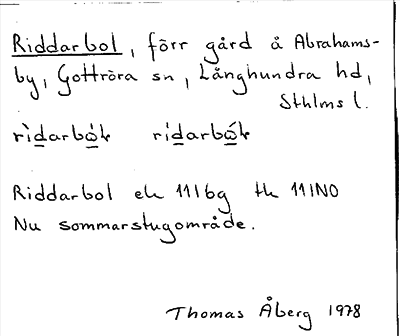 Riddarbol, förr gård å Abrahams-
by, Gottröra sn, Långhundra hd,
Sthlms l.
Riddarbol ek 11I6g tk 11INO
Nu sommarstugområde.
Thomas Åberg 1978